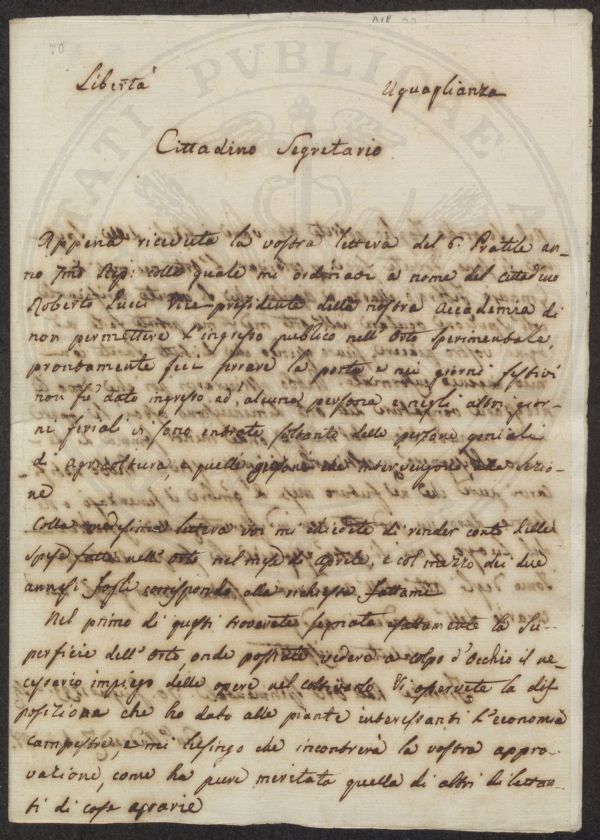 70
Libertà Uguaglianza
Cittadino Segretario
Appena ricevuta la vostra lettera del 6. Pratile an-
no Rep: colla quale mi ordinate a nome del cittadino
Roberto Lucci Vice-presidente della nostra Accademia di
non permettere l'ingresso publico nell'Orto Sperimentale,
prontamente feci serrare la porta, e nei giorni festivi
non fu dato ingresso ad alcuna persona e negli altri gior-
ni feriali vi sono entrate soltanto delle persone geniali
di Agricoltura, e quelle che intervengono alla Sezio-
ne
Colla medesima lettera voi mi di render conto delle
spese fatte nell'Orto nel mese di Aprile, e col mezzo dei due
annessi fogli corrispondo alla richiesta fattami
Nel primo di questi troverete segnata esattamente la Su-
perficie dell'Orto, onde possiate vedere a colpo d'Occhio il ne-
cessario impiego delle opere nel coltivarlo Vi osservete la dis
posizione che ho dato alle piante interessanti l'economia
campestre, e mi lusingo che incontrerà la vostra appro-
vazione, come ha pure meritata quella di altri dilettan-
ti di cose agrarie